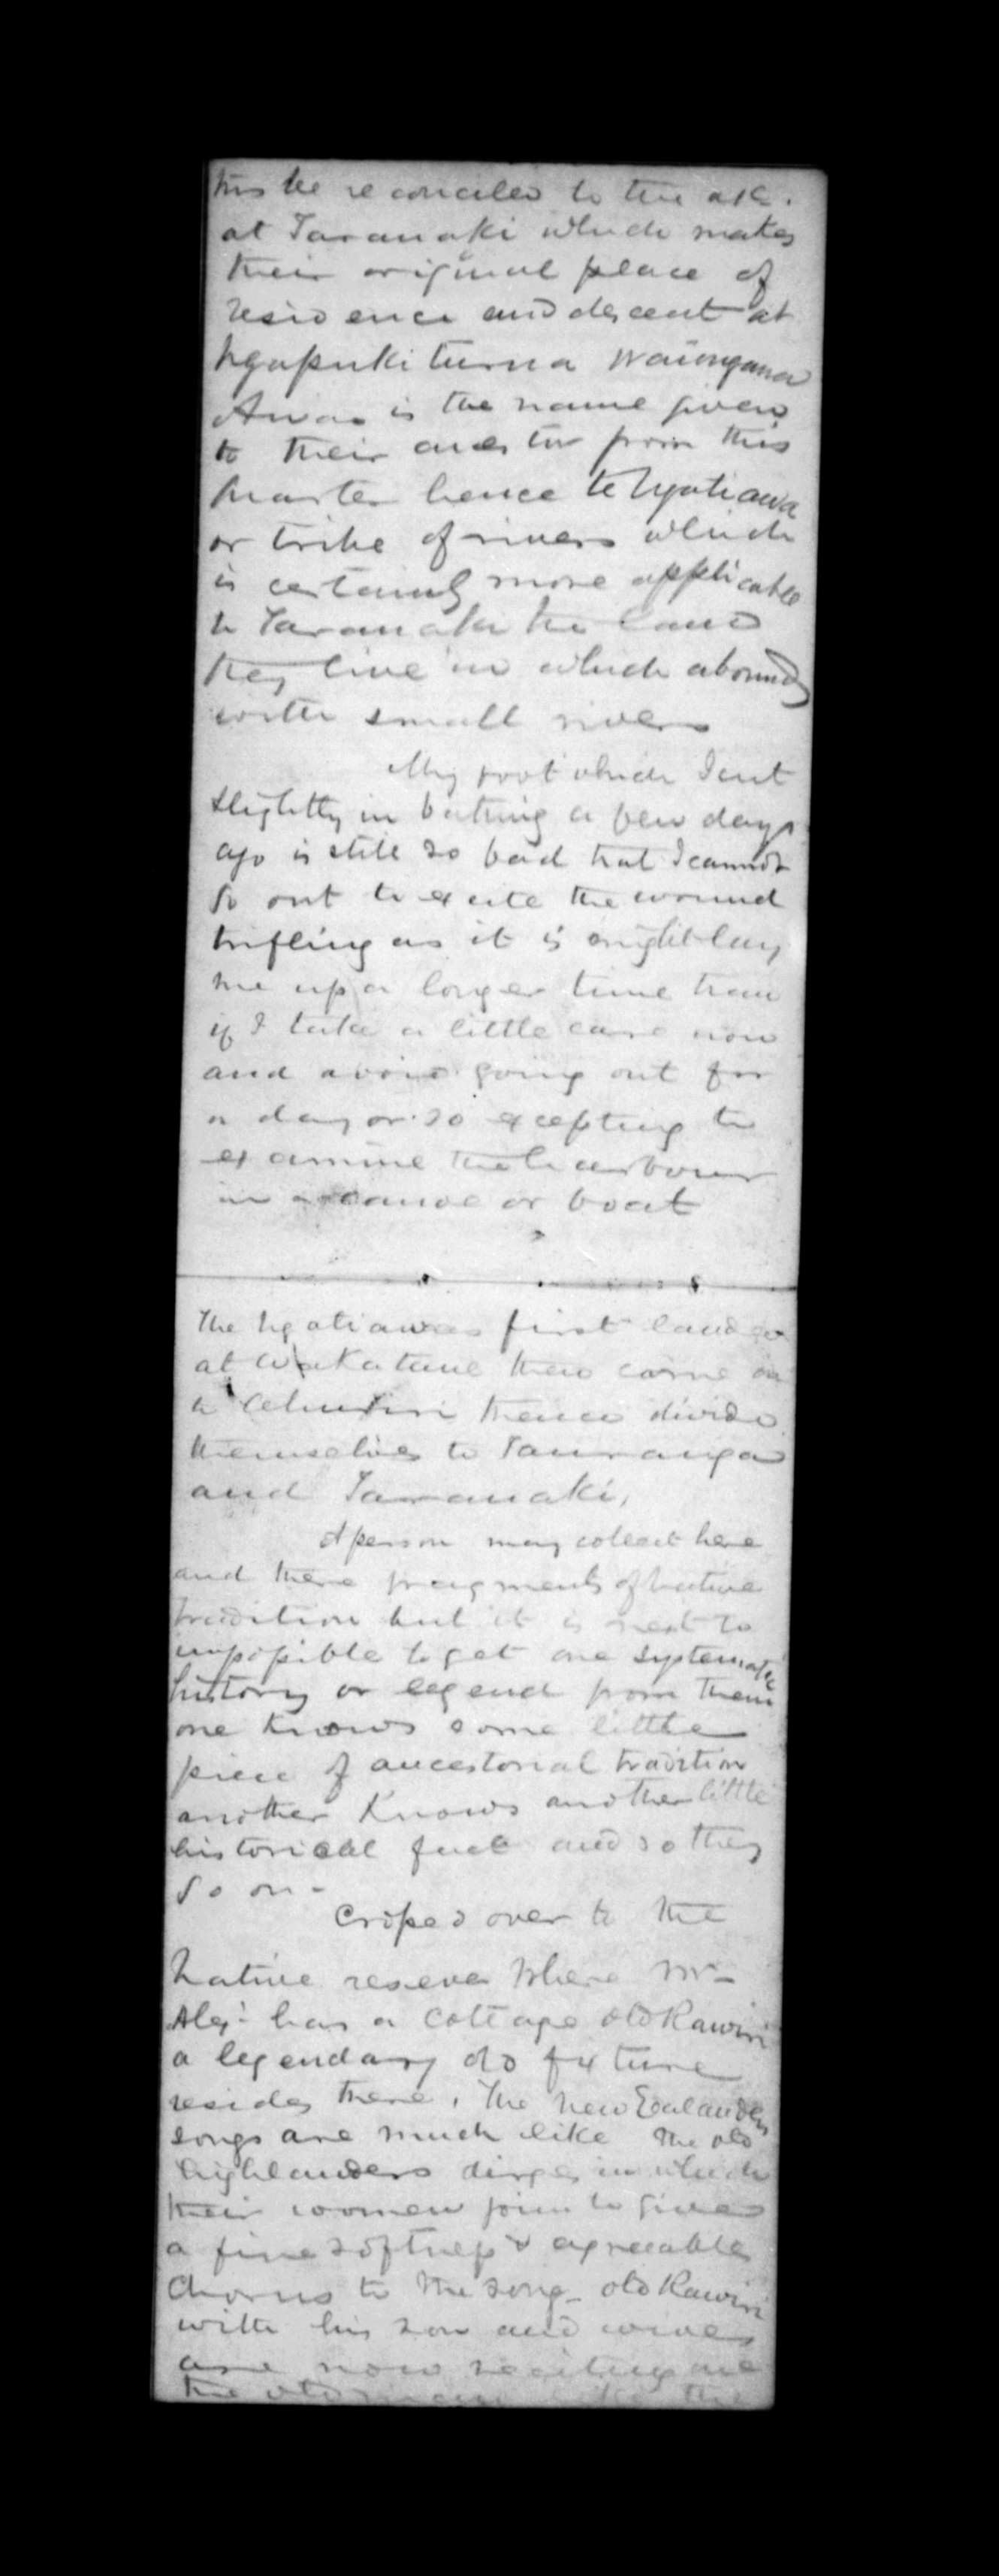 this be reconciled to the a/c.
at Taranaki which makes
their original place of
residence and descent at
Ngapukiturua Waiongana
Awa is the name given
to their ancestor from this
quarter hence te Ngatiawa
or tribe of rivers which
is certainly more applicable
to Taranaki the land
they live in which abounds
with small rivers
My foot which I cut
slightly in bathing a few days
ago is still so bad that I cannot
go out to excite the wound
trifling as it is might lay
me up a longer time than
if I take a little care now
and avoid going out for
a day or so excepting to
examine the harbour
in a canoe or boat
The Ngatiawas first landed
at Wakatane then came on
to Ahuriri thence divide
themselves to Tauranga
and Taranaki,
A person may collect here
and there fragments of native
tradition but it is next to
impossible to get one systematic
history or legend from them
one knows some little
piece of ancestorial tradition
another knows another little
historical fact and so they
go on -
Crossed over to the
Native reserve where Mr
has a cottage old Rawiri
a legendary old fixture
resides there. The New Zealanders
songs are much like the old
highlanders dirges in which
their women join to give
a fine softness & agreeable
chorus to the song - old Rawiri
with his son and wives
are now reciting one
the old man the